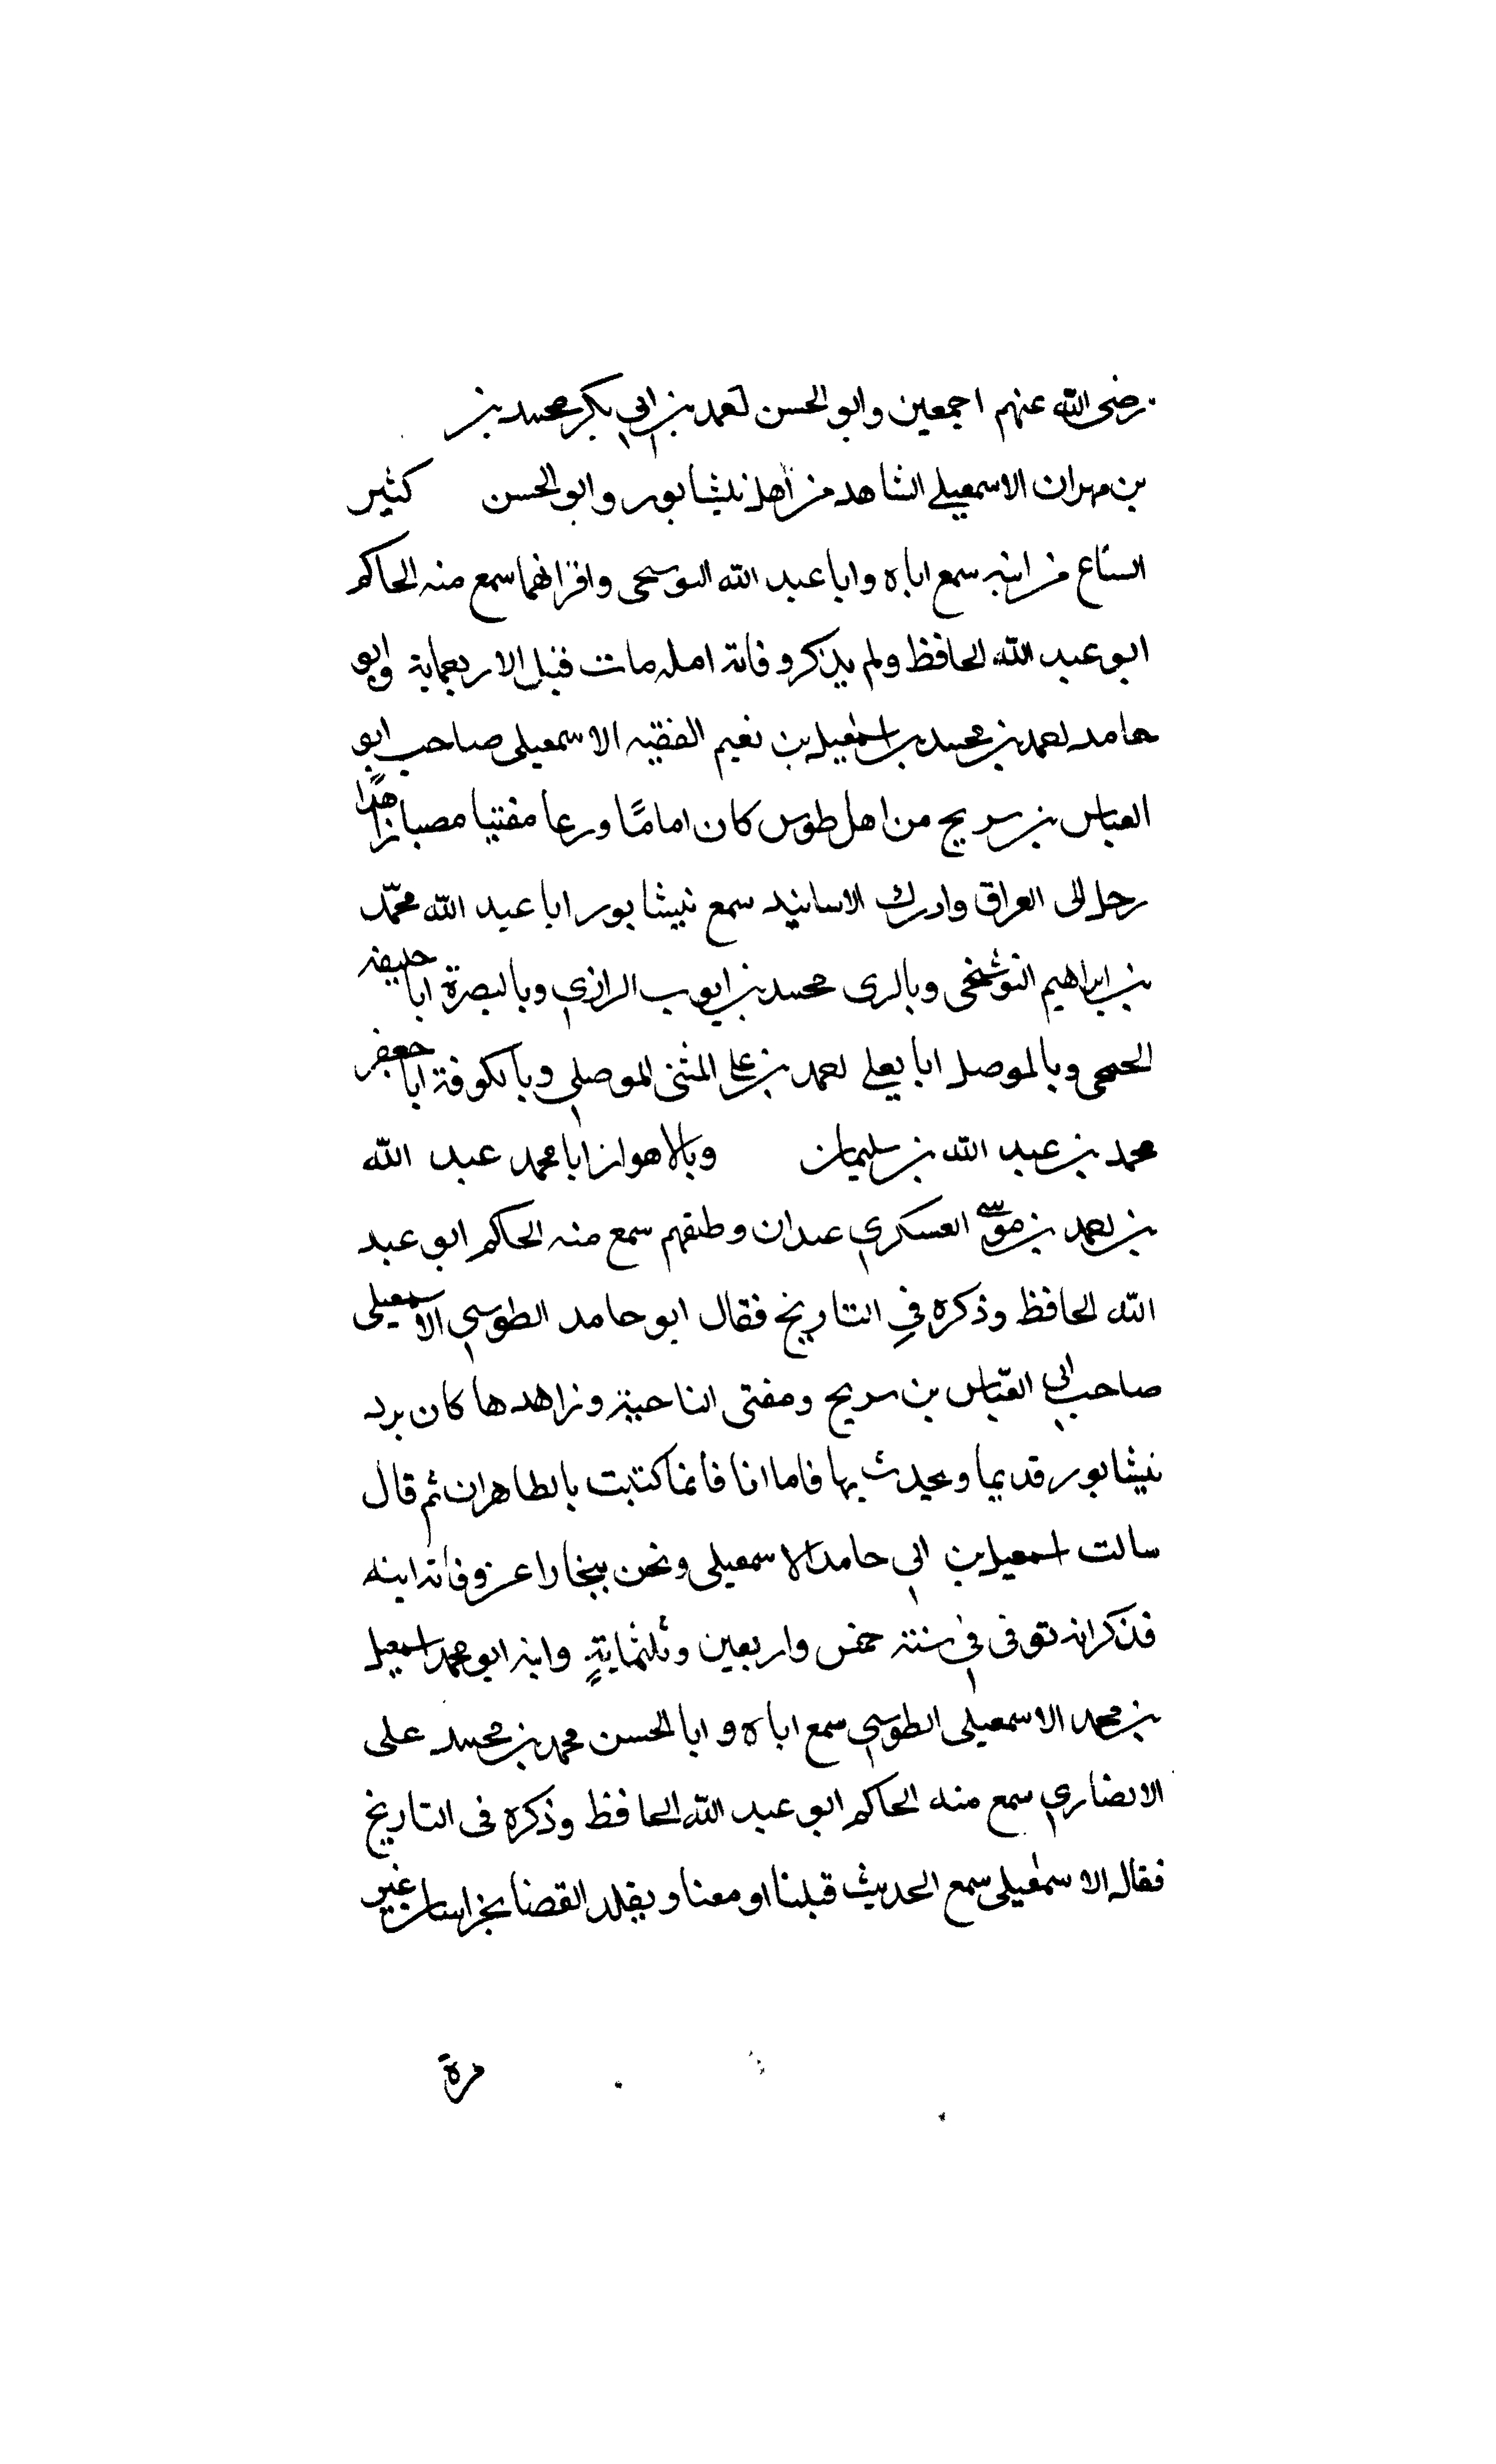 رضى الله عنهم اجمعين وابو الحسن احمد بن ابى بكر محمد بن
بن مهران الاسمعيلى الشاهد من اهل نيشابور وابو الحسن كثير
السماع من ابيه سمع اباه وابا عبد الله البوسنجى واقرانهما سمع منه الحاكم
ابو عبد الله الحافظ ولم يذكر وفاته لعله مات قبل الاربعماية وابو
حامد احمد بن محمد بن اسمعيل بن نعيم الفقيه الاسمعيلى صاحب ابو
العباس بن سريج من اهل طوس كان اماما ورعا مفتيا مصبا زاهدا
رحل الى العراق وادرك الاسانيد سمع نيشابور ابا عبد الله محمد
بن ابراهيم البوشنجى وبالرى محمد بن ايوب الرازى وبالبصرة ابا خليفة
الجمحى وبالموصل ابا يعلى احمد بن على المثنى الموصلى وبالكوفة ابا جعفر
محمد بن عبد الله بن سليمان وبالاهواز ابا محمد عبد الله
بن احمد بن موسى العسكرى عبدان وطبقتهم سمع منه الحاكم ابو عبد
الله الحافظ وذكره فى التاريخ فقال ابو حامد الطوسى الاسمعيلى
صاحب ابى العباس بن سريج ومفتى الناحية وزاهدها كان يرد
نيشابور قديما ويحدث بها فاما انا فانما كتبت بالطاهران ثم قال
سالت اسمعيل بن ابى حامد الاسمعيلى ونحن ببخارا عن وفاة ابيه
فذكر انه توفى فى سنة خمس واربعين وثلثماية وابنه ابو محمد اسمعيل
بن محمد الاسمعيلى الطوسى سمع اباه وابا الحسن محمد بن محمد على
الانصارى سمع منه الحاكم ابو عبد الله الحافظ وذكره فى التاريخ
فقال الاسمعيلى سمع الحديث قبلنا او معنا ويقلد القضا بخراسان غير
مرة